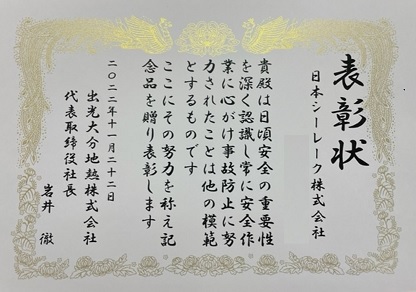 表彰状
日本シーレーク株式会社
貴殿は日頃安全の重要性
を深く認識し常に安全作
業に心がけ事故防止に努
力されたことは他の模範
とするものです
ここにその努力を称え記
念品を贈り表彰します
二〇二二年十一月二十二日
出光大分地熱株式会社
代表取締役社長
岩井 徹